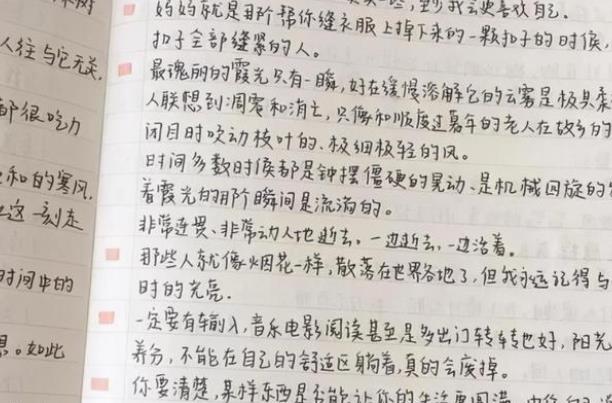 人往与它无关,
都很吃力
和的寒风,
这一刻走
时间中的
。如此
些,至少我会更喜欢自己.
妈妈就是那阶帮你缝衣服上掉下来的一颗扣子的时候,
扣子全部缝紧的人。
最瑰丽的霞光只有一瞬,好在缓慢溶解它的云雾是极具柔
人联想到凋零和消亡,只像和顺度过暮年的老人在故乡的
闭目时吹动枝叶的、极细极轻的风。
时间多数时候都是钟摆僵硬的晃动、是机械回旋的
着霞光的那阶瞬间是流淌的。
非常连贯、非常动人地逝去。一边逝去,一边活着。
那些人就像烟花一样,散落在世界各地了,但我永远记得与
时的光亮.
一定要有输入,音乐电影阅读甚至是多出门转转也好,阳光
养分,不能在自己的舒适区躺着,真的会废掉。
你要清楚,某样东西是否能让你的生活更圆满,